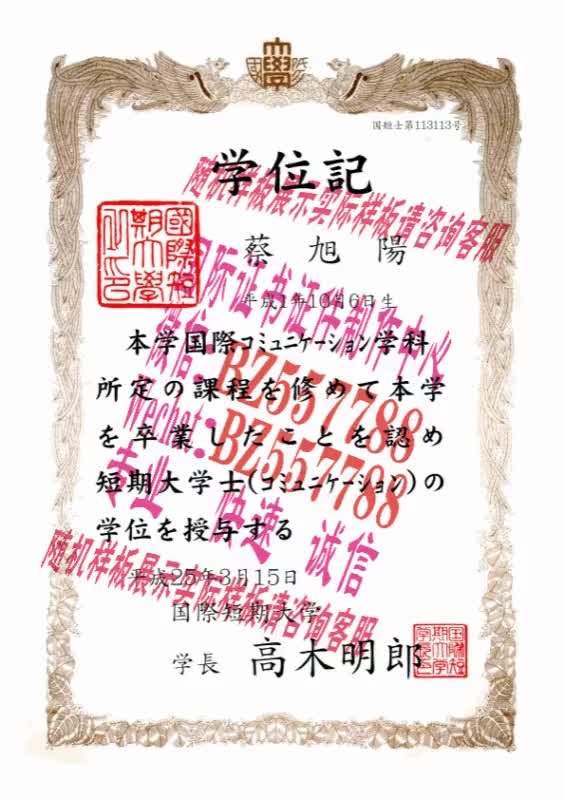 大學
国短
国短士第113113号
学位記
随机样板展示实际样板请咨询客服
國際短期大學之印
蔡旭陽
平成1年10月6日生
国际证书证件制作中心
本学国際コミュニケーション学科
微信:BZ557788
所定の課程を修めて本学
Wechat:BZ557788
を卒業したことを認め
短期大学士(コミュニケーション)の
专业 快速 诚信
学位を授与する
随机样板展示实际样板请咨询客服
平成25年3月15日
国際短期大学
学長 高木明郎